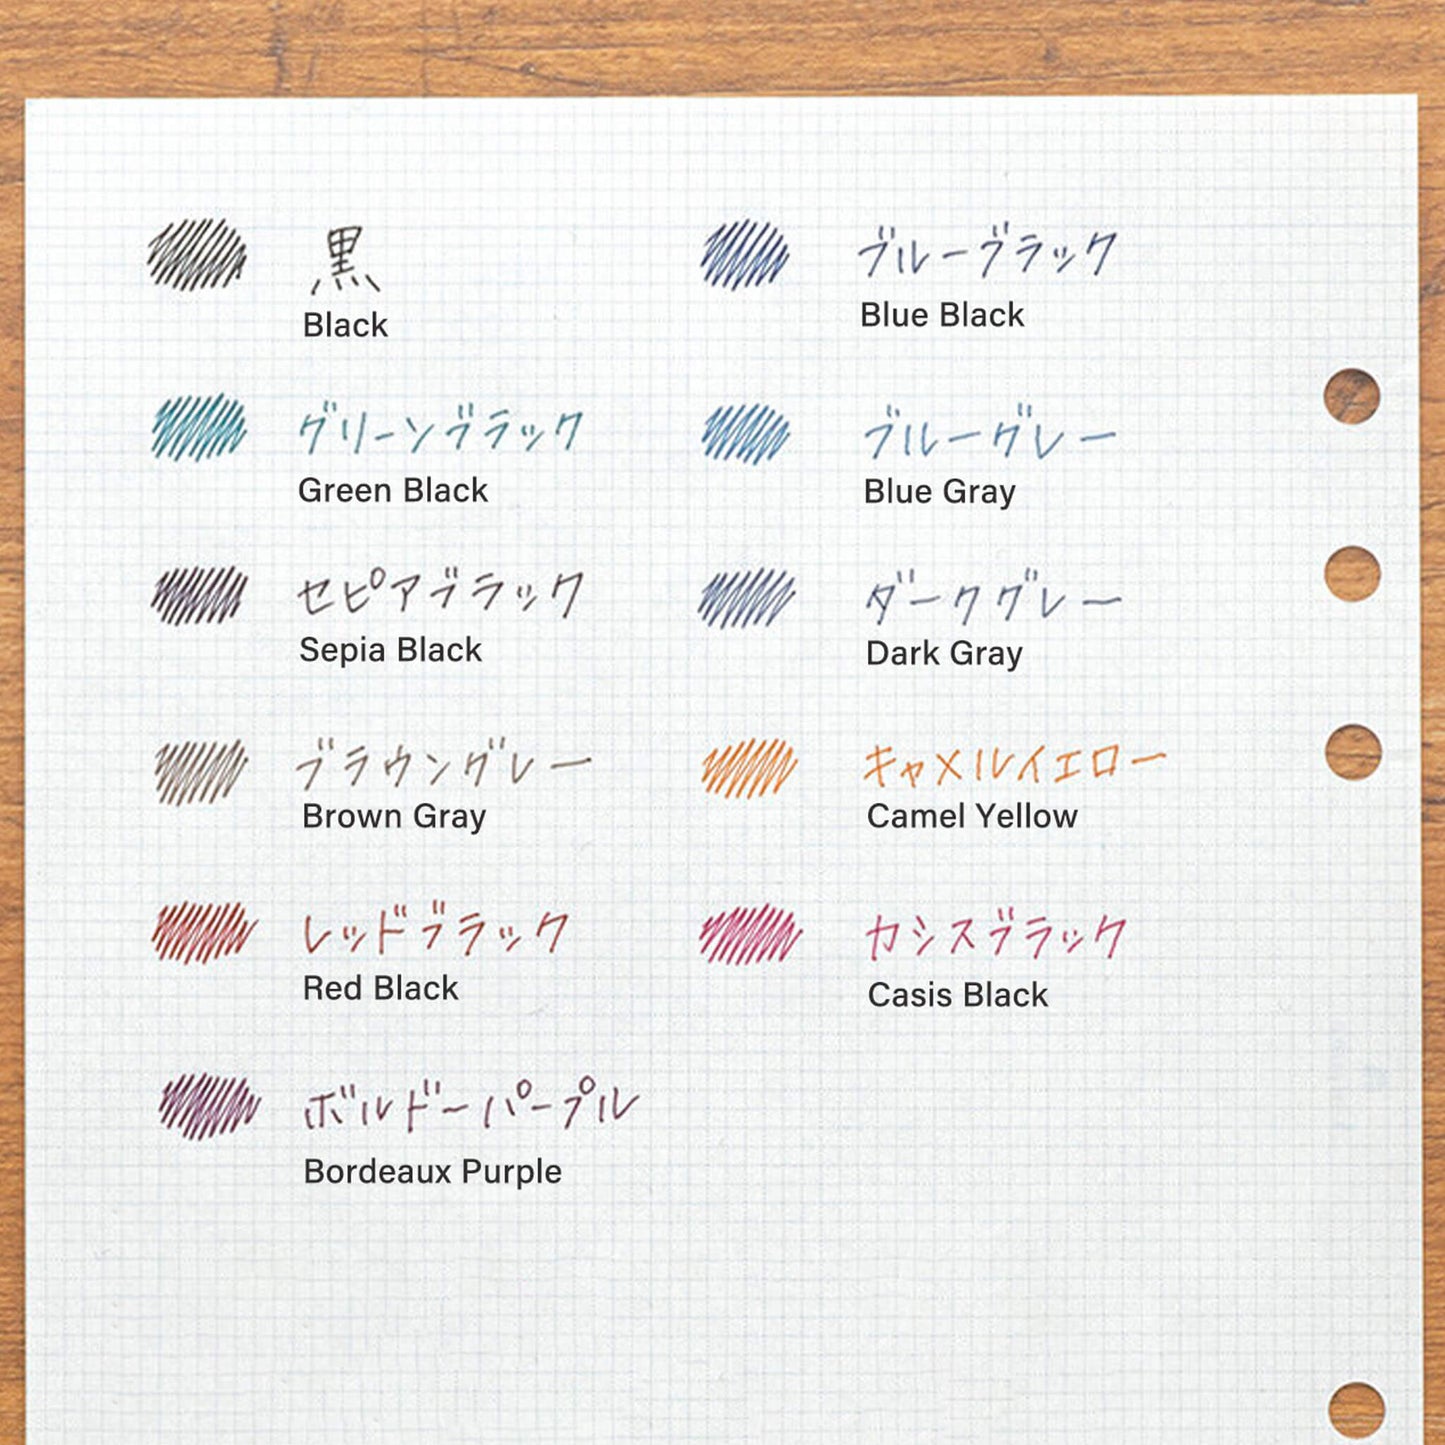 黒
Black
ブルーブラック
Blue Black
グリーンブラック
Green Black
ブルーグレー
Blue Gray
セピアブラック
Sepia Black
ダークグレー
Dark Gray
ブラウングレー
Brown Gray
キャメルイエロー
Camel Yellow
レッドブラック
Red Black
カシスブラック
Casis Black
ボルドーパープル
Bordeaux Purple